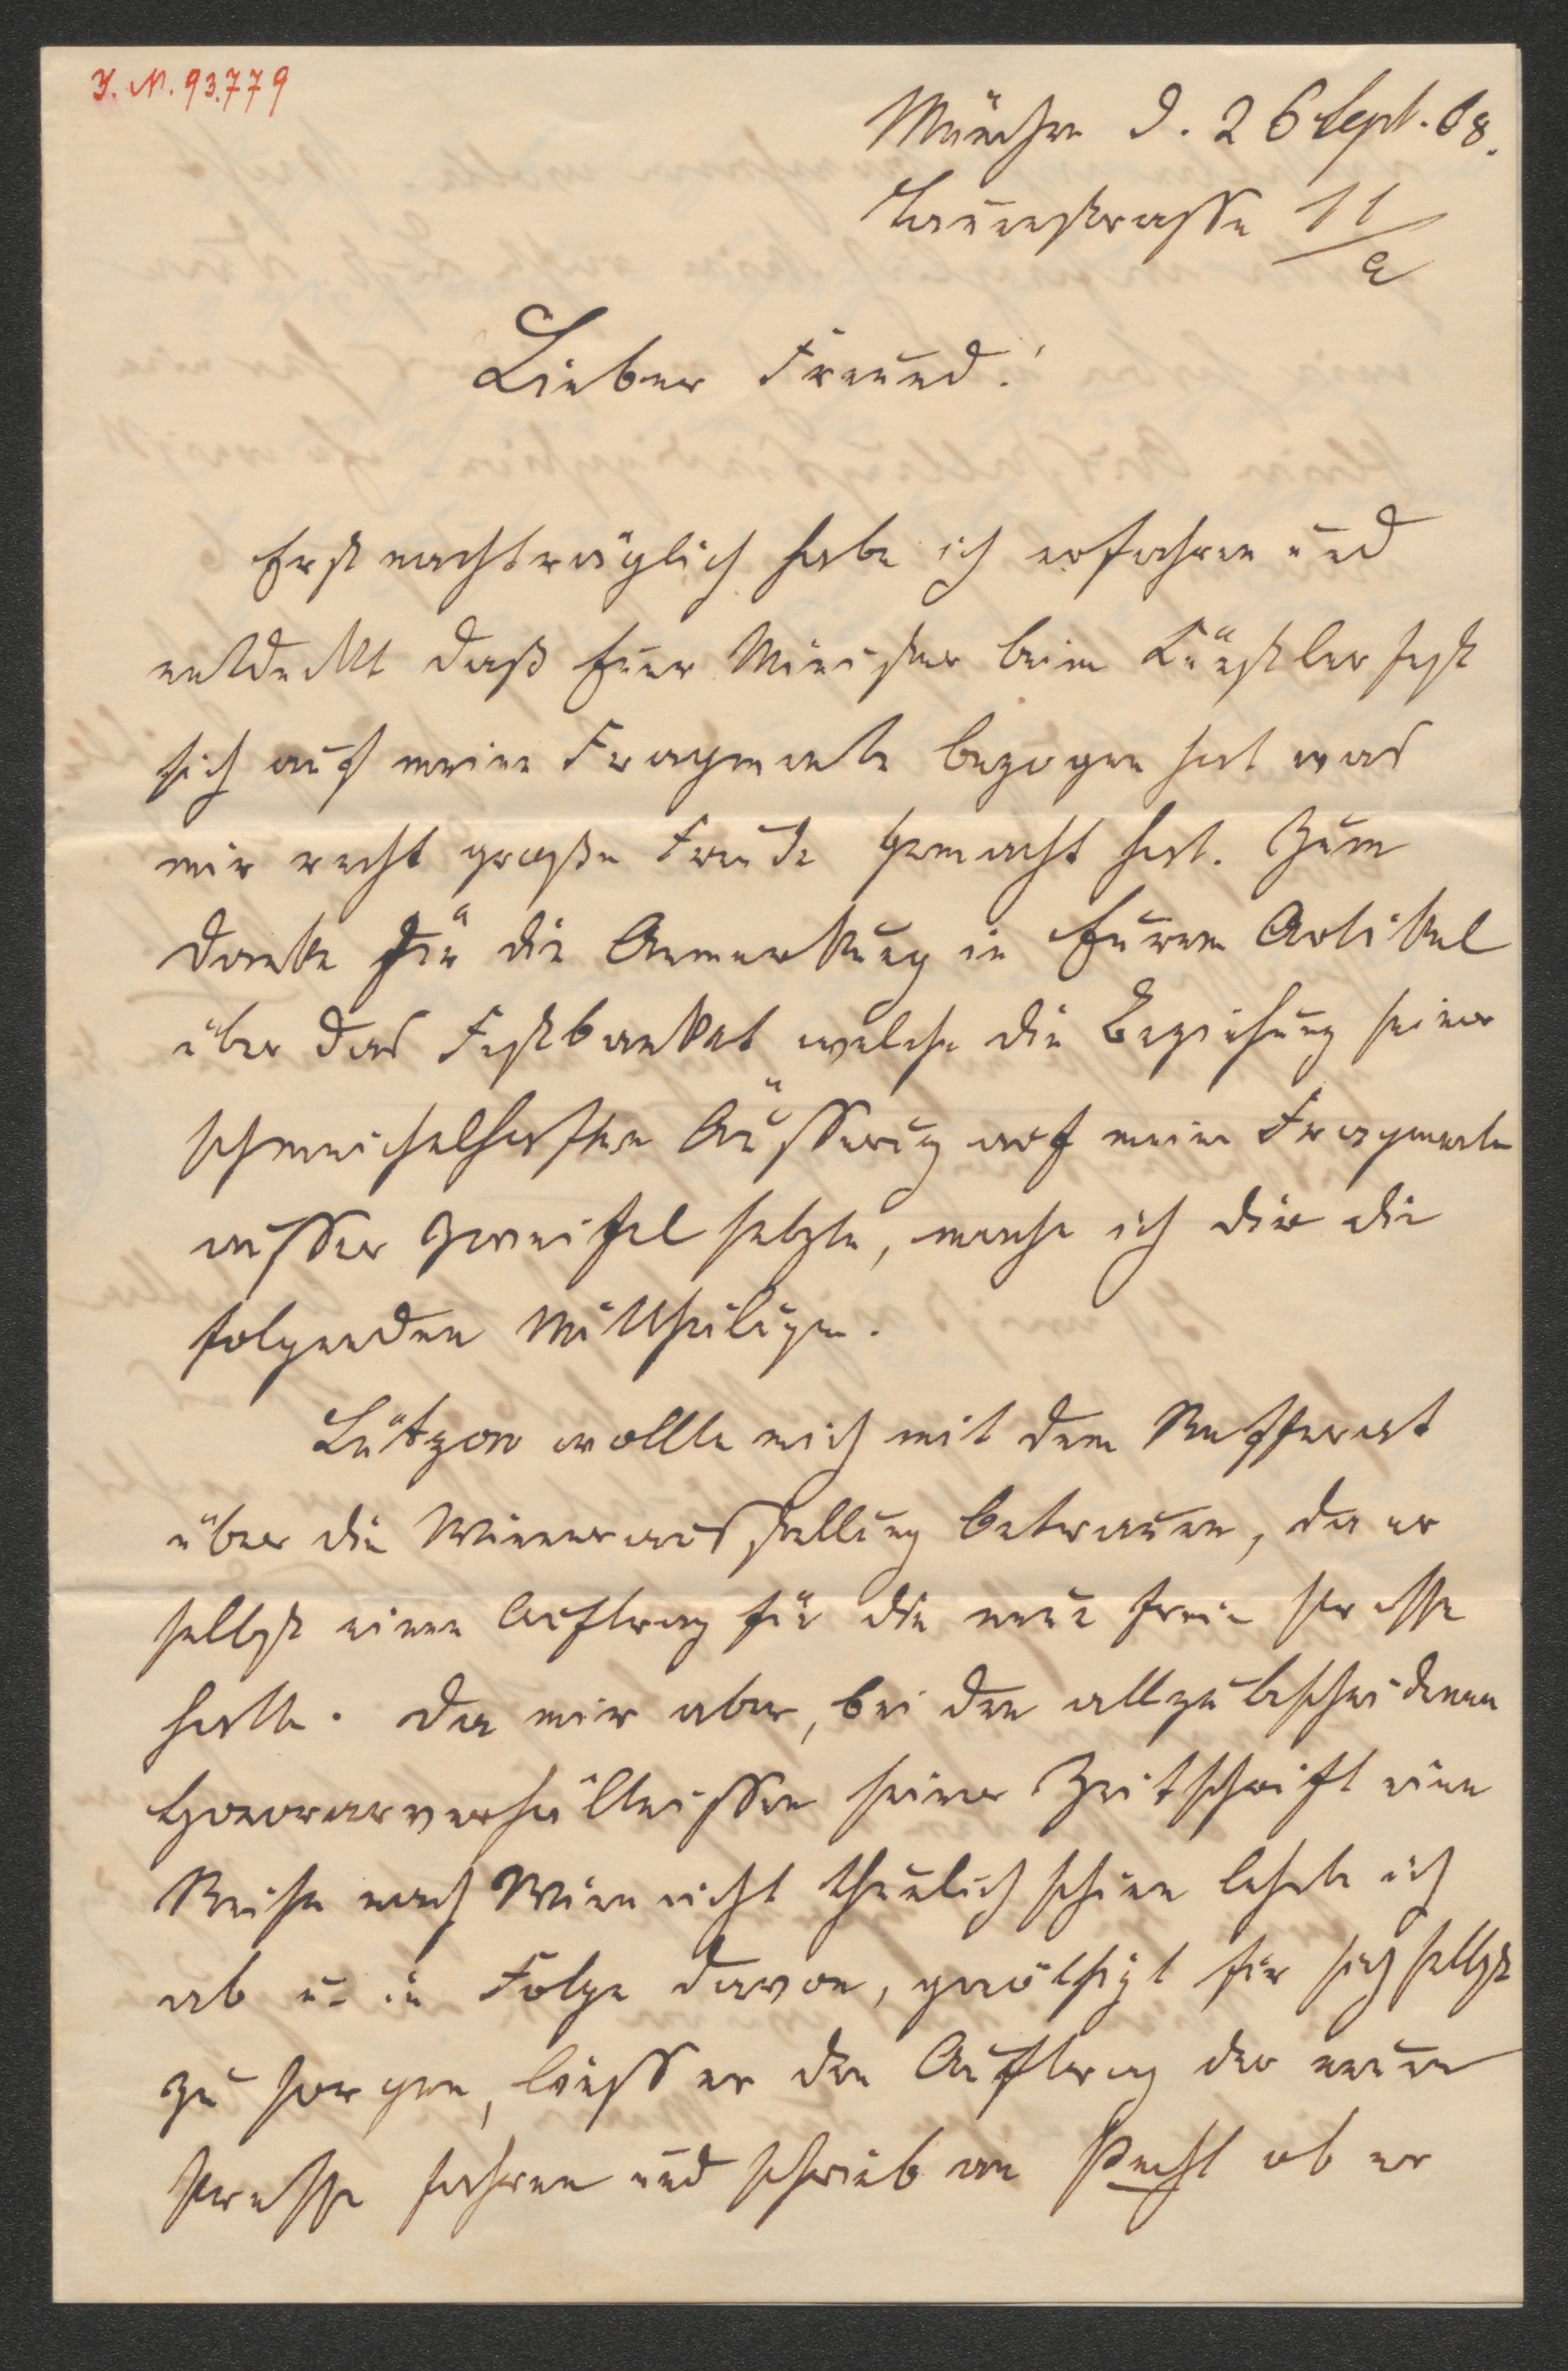 I. N. 93.779
München d. 26 Sept. 68.
Tannenstrasse 11/a
Lieber Freund!
Erst nachträglich habe ich erfahren und
entdeckt daß Euer Minister beim Künstlerfest
sich auf meine Fragmente bezogen hat was
mir recht große Freude gemacht hat. Zum
Danke für die Anmerkung in Eurem Artikel
über das Festbanket welche die Beziehung seiner
schmeichelhaften Äusserung auf meine Fragmente
ausser Zweifel setzte, mache ich dir die
folgenden Mittheilungen.
Lützow wollte mich mit dem Refferat
über die Wienerausstellung betrauen, da er
selbst einen Auftrag für die neue freie Presse
hatte. Da mir aber, bei den allzubescheidenen
Honorarverhältnissen seiner Zeitschrift eine
Reise nach Wien nicht thunlich schien lehnte ich
ab u. in Folge davon, genöthigt für sich selbst
zu sorgen, liess er den Auftrag der neuen
Presse fahren und schrieb an Pecht ob er